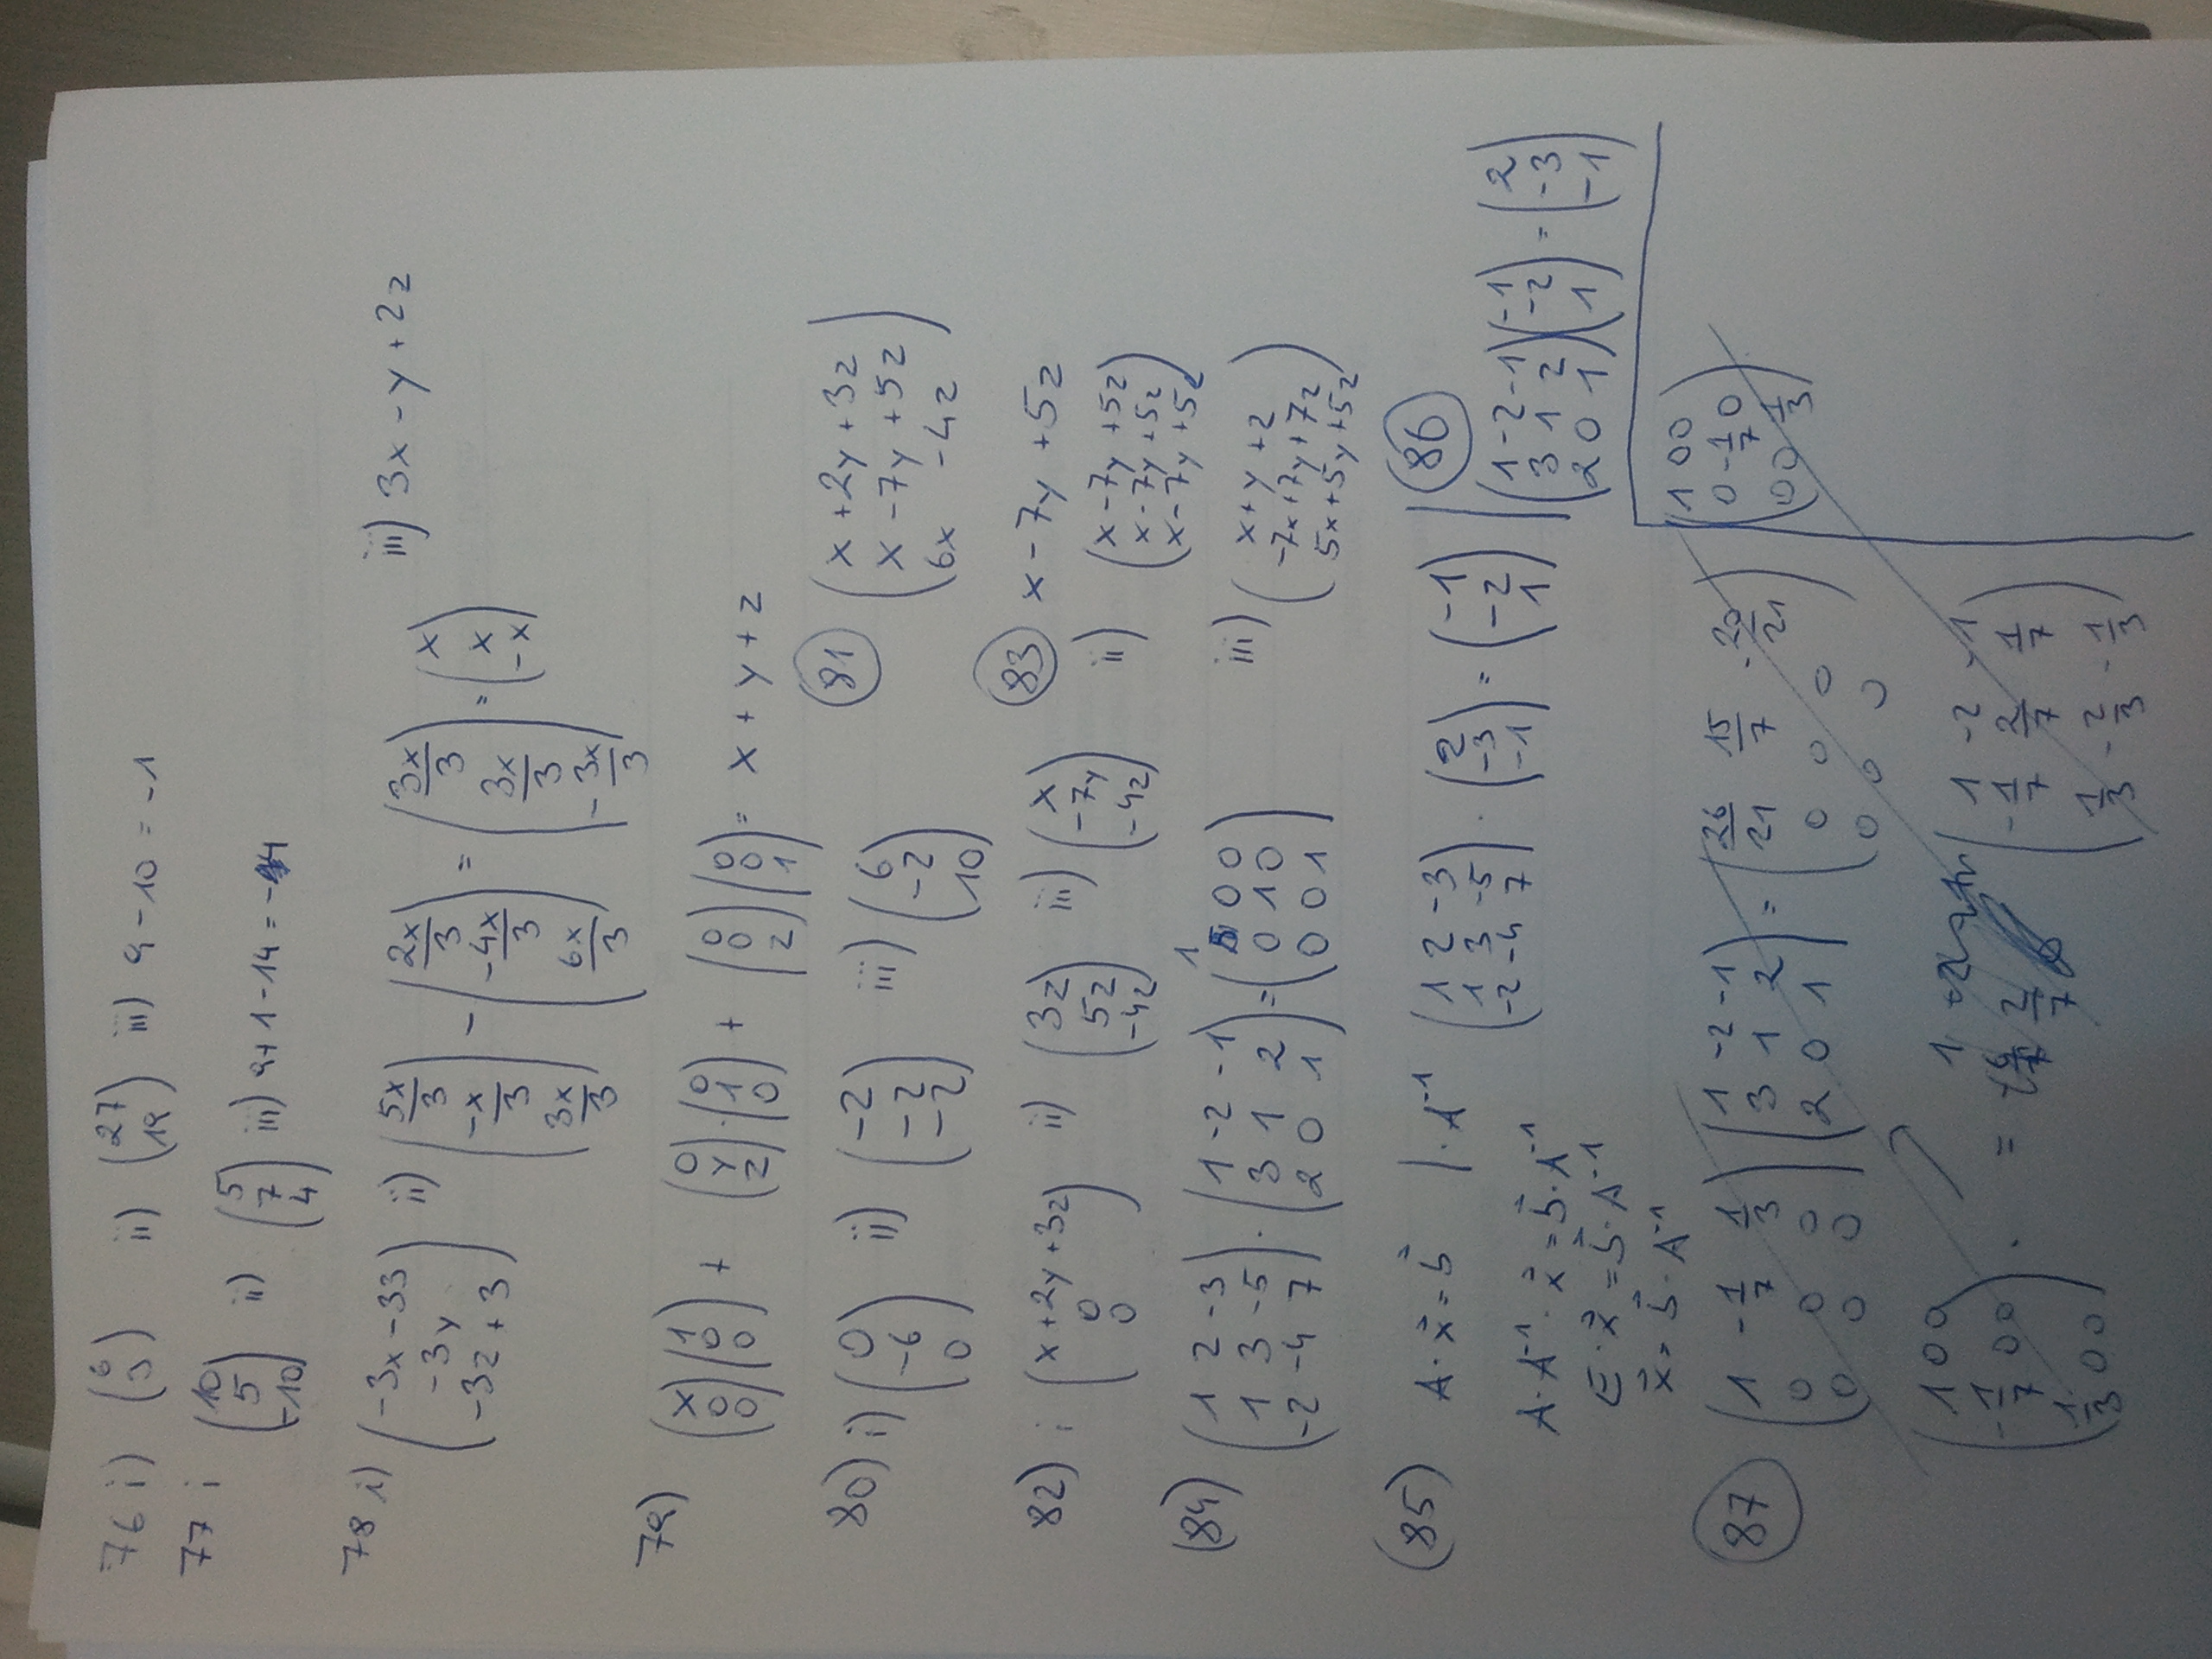 76 i) (6 3) ii) (27 19) iii) 9 - 10 = -1
77 i (10 5 -10) ii) (5 7 4) iii) 9+1-14 = -4
78 i) (-3x-33 -3y -3z+3) ii) (5x/3 -x/3 3x/3) - (2x/3 -4x/3 6x/3) = (3x/3 3x/3 -3x/3) = (x x -x) iii) 3x - y + 2z
79) (x 0 0)(1 0 0) + (0 y z)·(0 1 0) + (0 0 z)(0 0 1) = x + y + z
80) i) (0 -6 0) ii) (-2 -2 -2) iii) (6 -2 10) 81 (x +2y +3z
x -7y +5z
6x -4z)
82) i (x+2y+3z 0 0) ii) (3z 5z -4z) iii) (x -7y -4z) 83 x - 7y + 5z
ii) (x-7y+5z
x-7y+5z
x-7y+5z)
iii) (x+y+z
-7x+7y+7z
5x+5y+5z)
(84) (1 2 -3
1 3 -5
-2 -4 7) · (1 -2 -1
3 1 2
2 0 1) = (1 0 0
0 1 0
0 0 1)
(85) A · x = b | · A-1
A · A-1 · x = b · A-1
E · x = b · A-1
x = b · A-1
(1 2 -3
1 3 -5
-2 -4 7) · (2 -3 -1) = (-1 -2 1)
86
(1 -2 -1
3 1 2
2 0 1)(-1 -2 1) = (2 -3 -1)
87 (1 -1/7 1/3
0 0 0
0 0 0) (1 -2 -1
3 1 2
2 0 1) = (26/21 15/7 -20/21
0 0 0
0 0 0)
(1 0 0
0 -1/7 0
0 0 1/3)
(1 0 0
-1/7 0 0
1/3 0 0) · =
2/7
(1 -2 -1
-1/7 2/7 1/7
1/3 -2/3 -1/3)